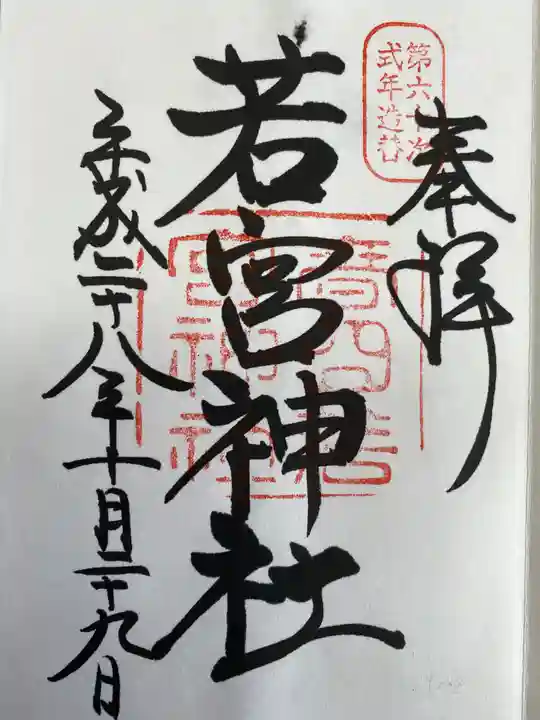 第六十次
式年造替
奉拝
若宮神社
平成二十八年十月二十九日